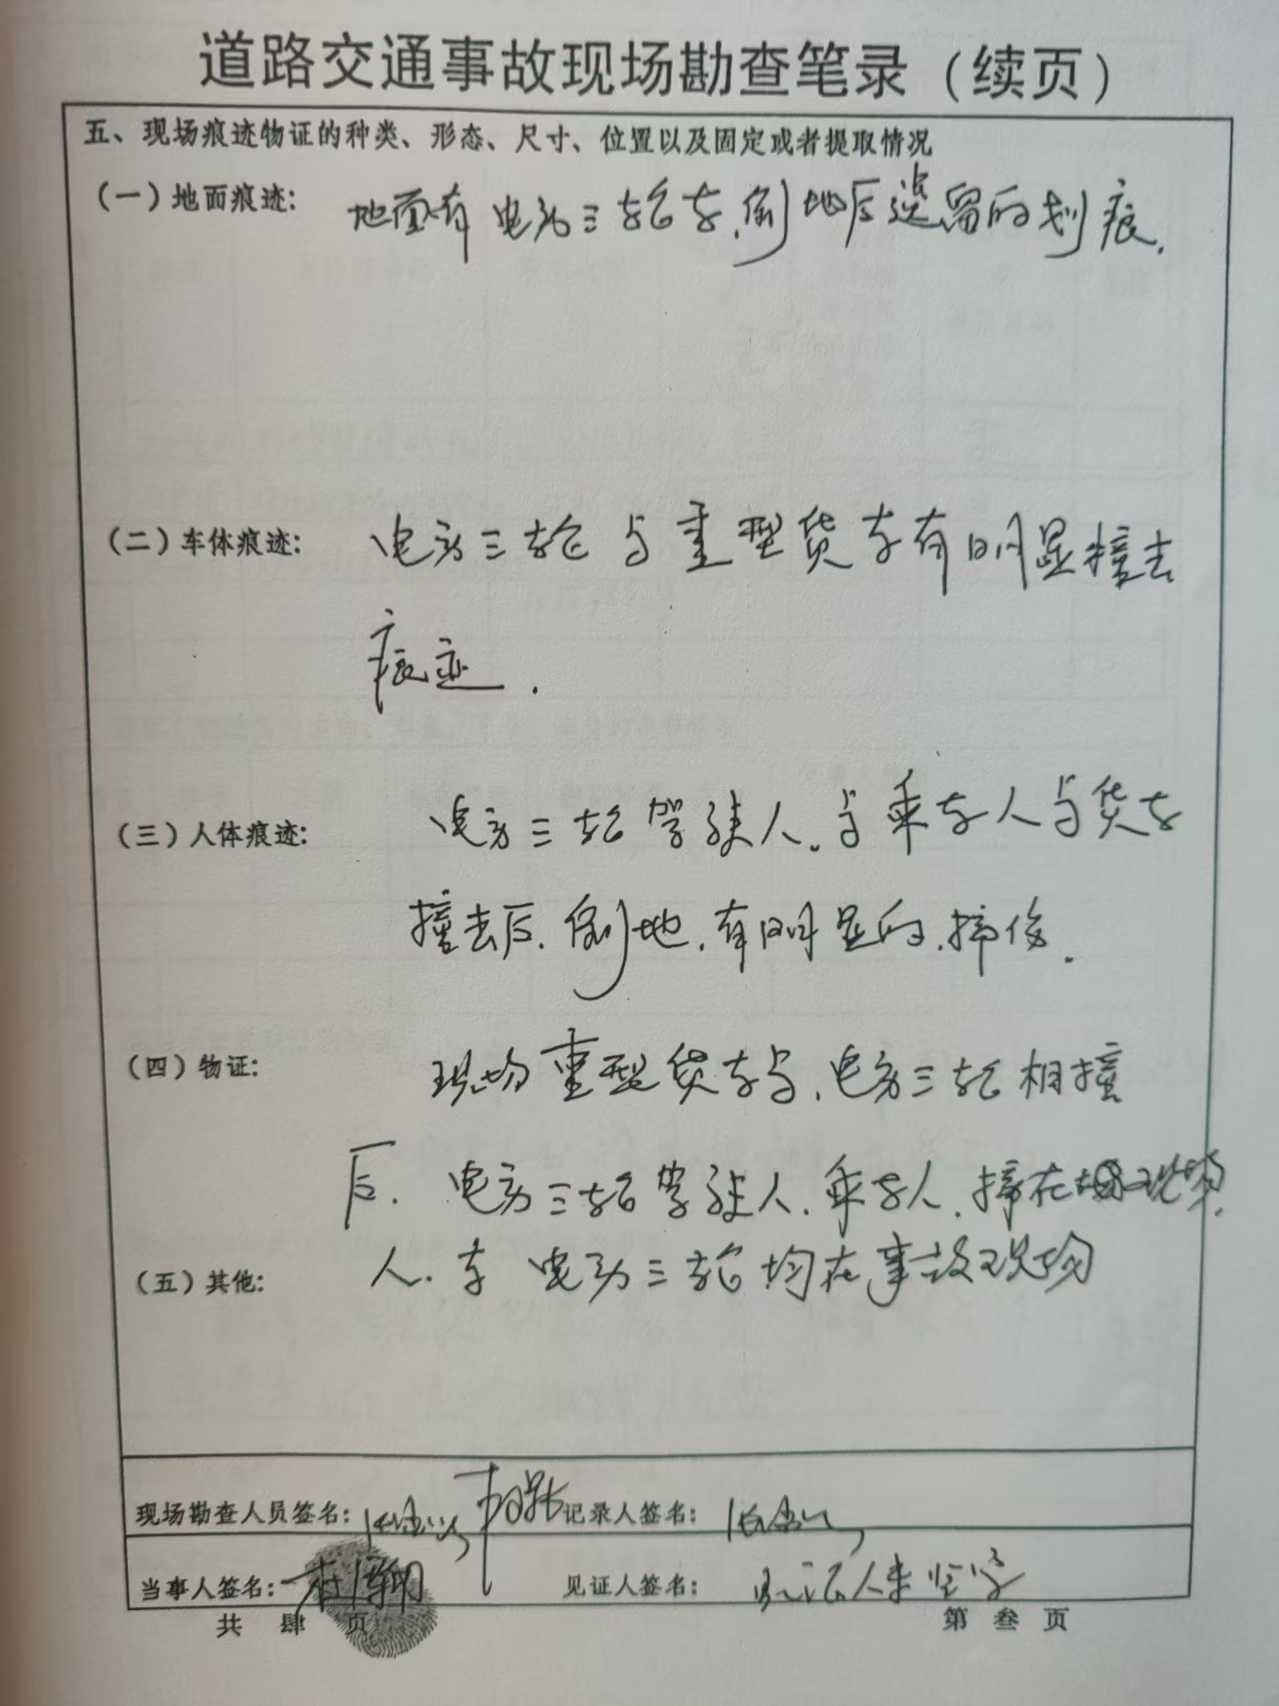 道路交通事故现场勘查笔录（续页）
五、现场痕迹物证的种类、形态、尺寸、位置以及固定或者提取情况
（一）地面痕迹: 地面有电动三轮车.倒地后遗留的划痕.
（二）车体痕迹: 电动三轮与重型货车有明显撞击
痕迹.
（三）人体痕迹: 电动三轮驾驶人。与乘车人与货车
撞击后.倒地.有明显的.摔伤.
（四）物证: 现场重型货车与.电动三轮相撞
后. 电动三轮驾驶人.乘车人.摔在现场.
（五）其他: 人.车 电动三轮均在事故现场
现场勘查人员签名: 记录人签名:
当事人签名: 见证人签名: 见证人
共 肆 页 第 叁 页